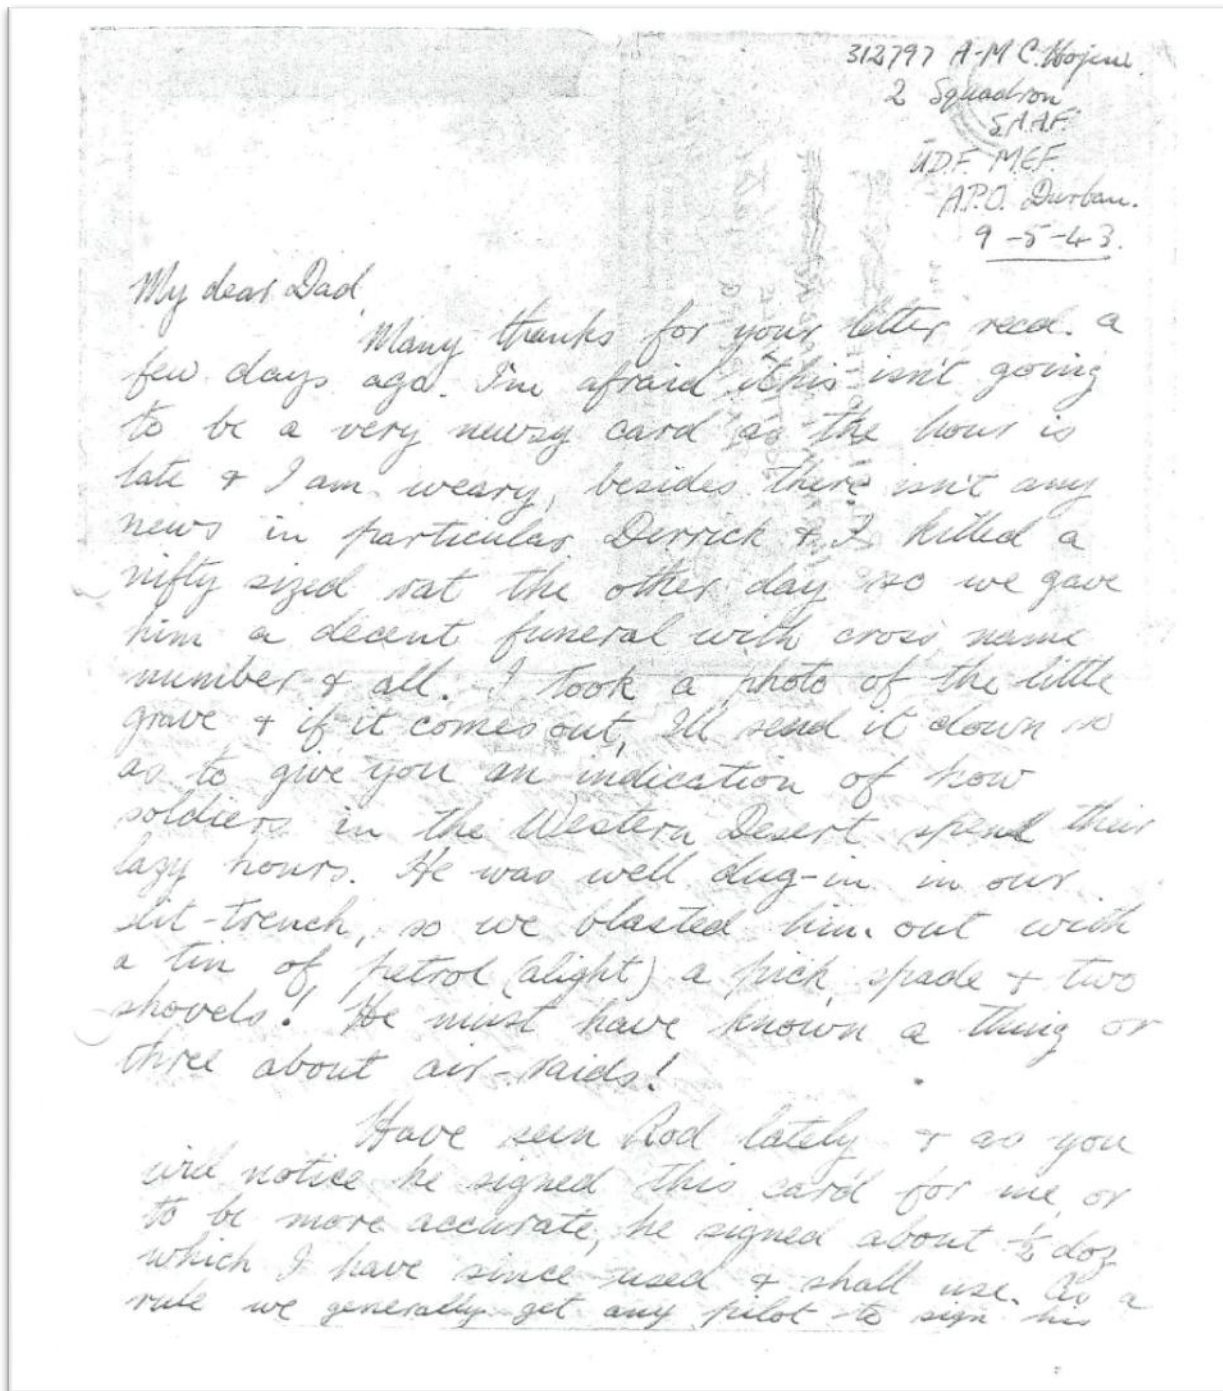 312797 A-M C.
2 Squadron
S.A.A.F.
U.D.F. M.E.F.
A.P.O. Durban.
9-5-43.
My dear Dad,
Many thanks for your letter recd. a
few days ago. I'm afraid this isn't going
to be a very newsy card as the hour is
late & I am weary, besides there isn't any
news in particular. Derrick & I killed a
nifty sized rat the other day so we gave
him a decent funeral with cross, name
number & all. I took a photo of the little
grave & if it comes out, I'll send it down so
as to give you an indication of how
soldiers in the Western Desert spend their
lazy hours. He was well dug-in in our
slit-trench, so we blasted him out with
a tin of petrol (alight) a pick, spade & two
shovels! He must have known a thing or
three about air-raids!
Have seen Rod lately & as you
will notice he signed this card for me, or
to be more accurate, he signed about ½ doz
which I have since used & shall use. As a
rule we generally get any pilot to sign his